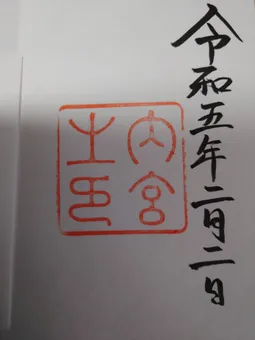 令和五年二月二日
内宮
之印